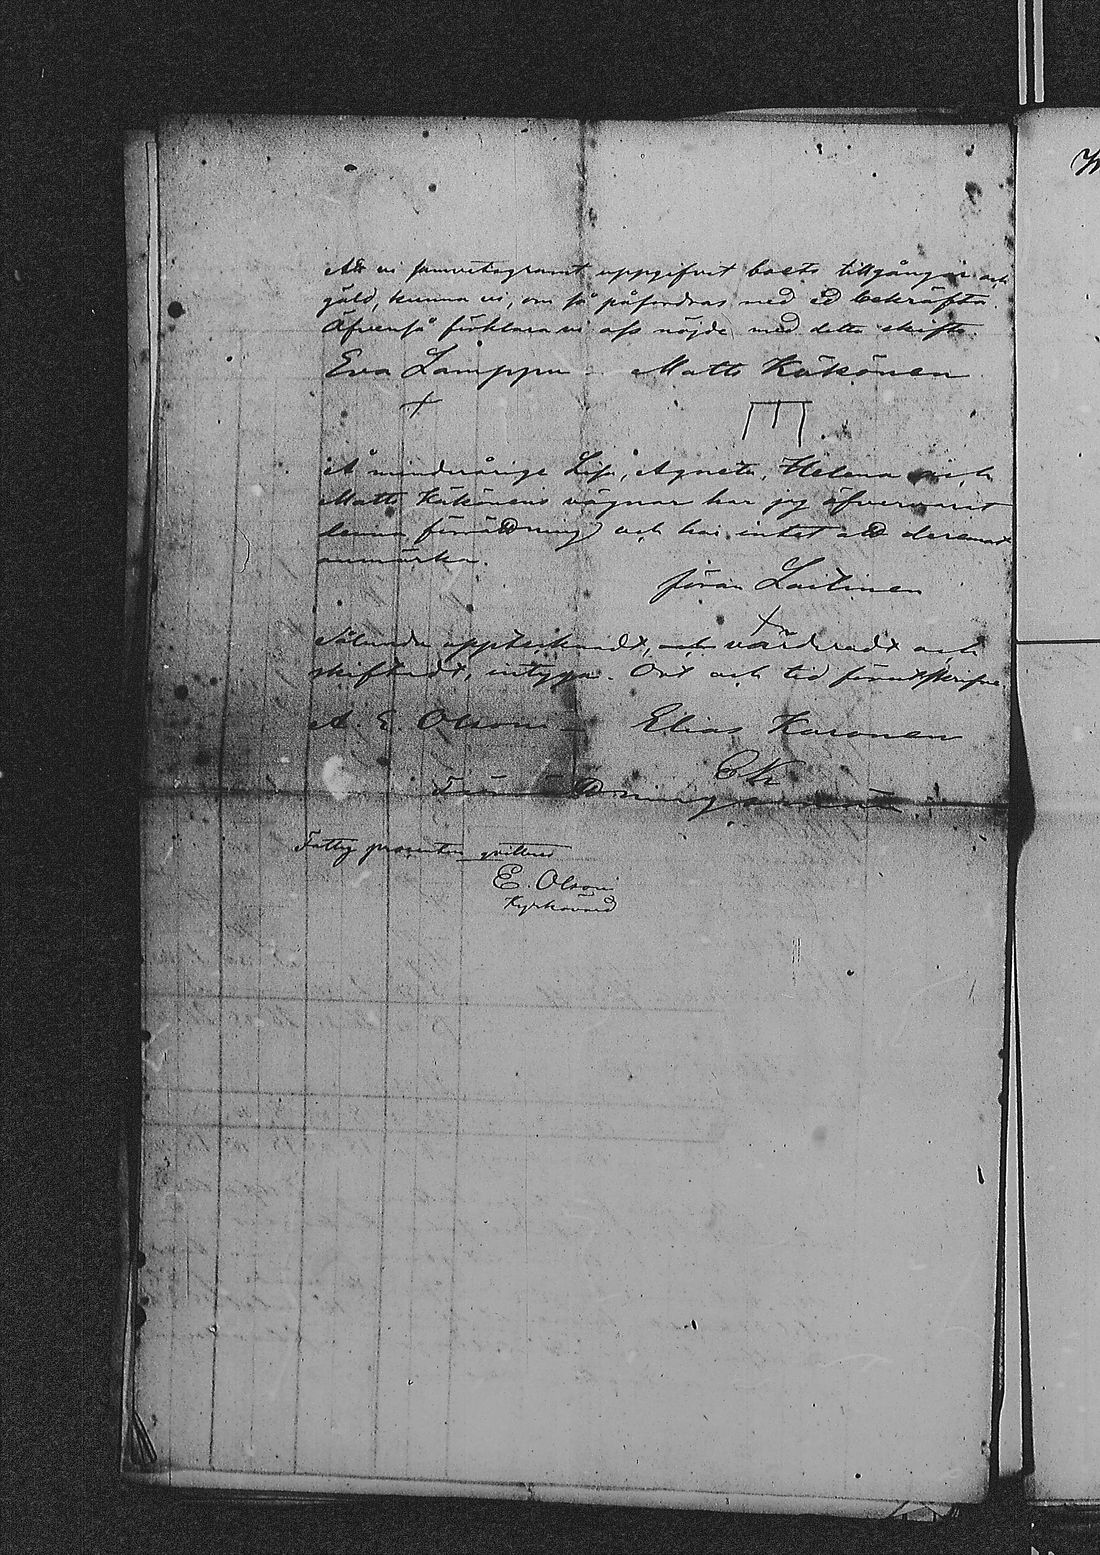 Att vi samvetsgrannt uppgifvit boets tillgångar och
gäld, kunna vi, om så påfordras med ed bekräfta
Äfvenså förklara vi oss nöjde med detta skifte.
Eva Lamppu Matts Käkönen
Å minderårige Lisa, Agneta, Helena och
Matts Käkönens vägnar har jag öfvervarit
denna förrättning och har intet att deremot
anmärka.
Jöran Laitinen
Sålunda upptecknadt, och värderadt och
skiftadt, intyga. Ort och tid förutskrifne
A. E. Olsoni Elias Karonen
EK
Förrättningsmän
Fattig procenten qvitteras
E. Olsoni
Kyrkovärd